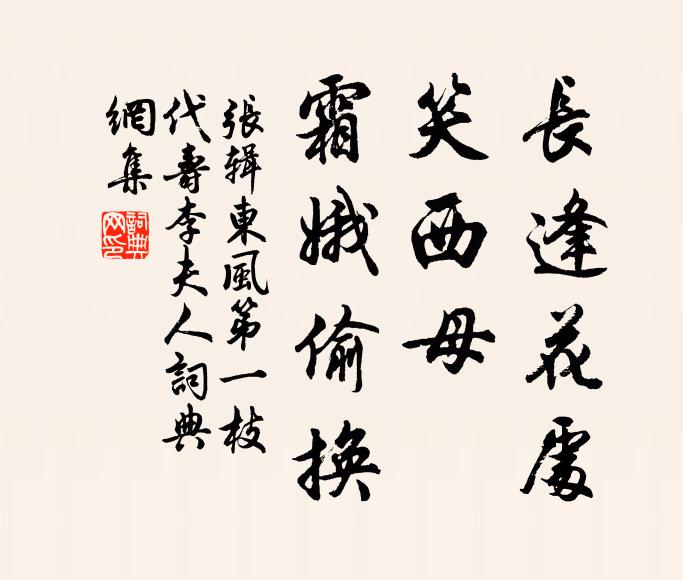 長逢花處
笑西母
霜娥偷換
張辑東風第一枝
代壽李夫人詞典
網集
詞典网印